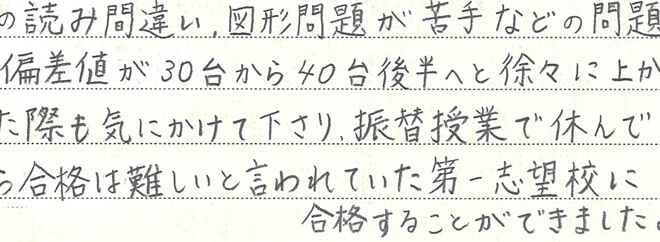 の読み間違い、図形問題が苦手などの問題
偏差値が30台から40台後半へと徐々に上か
た際も気にかけて下さり、振替授業で休んで
ら合格は難しいと言われていた第一志望校に
合格することができました。